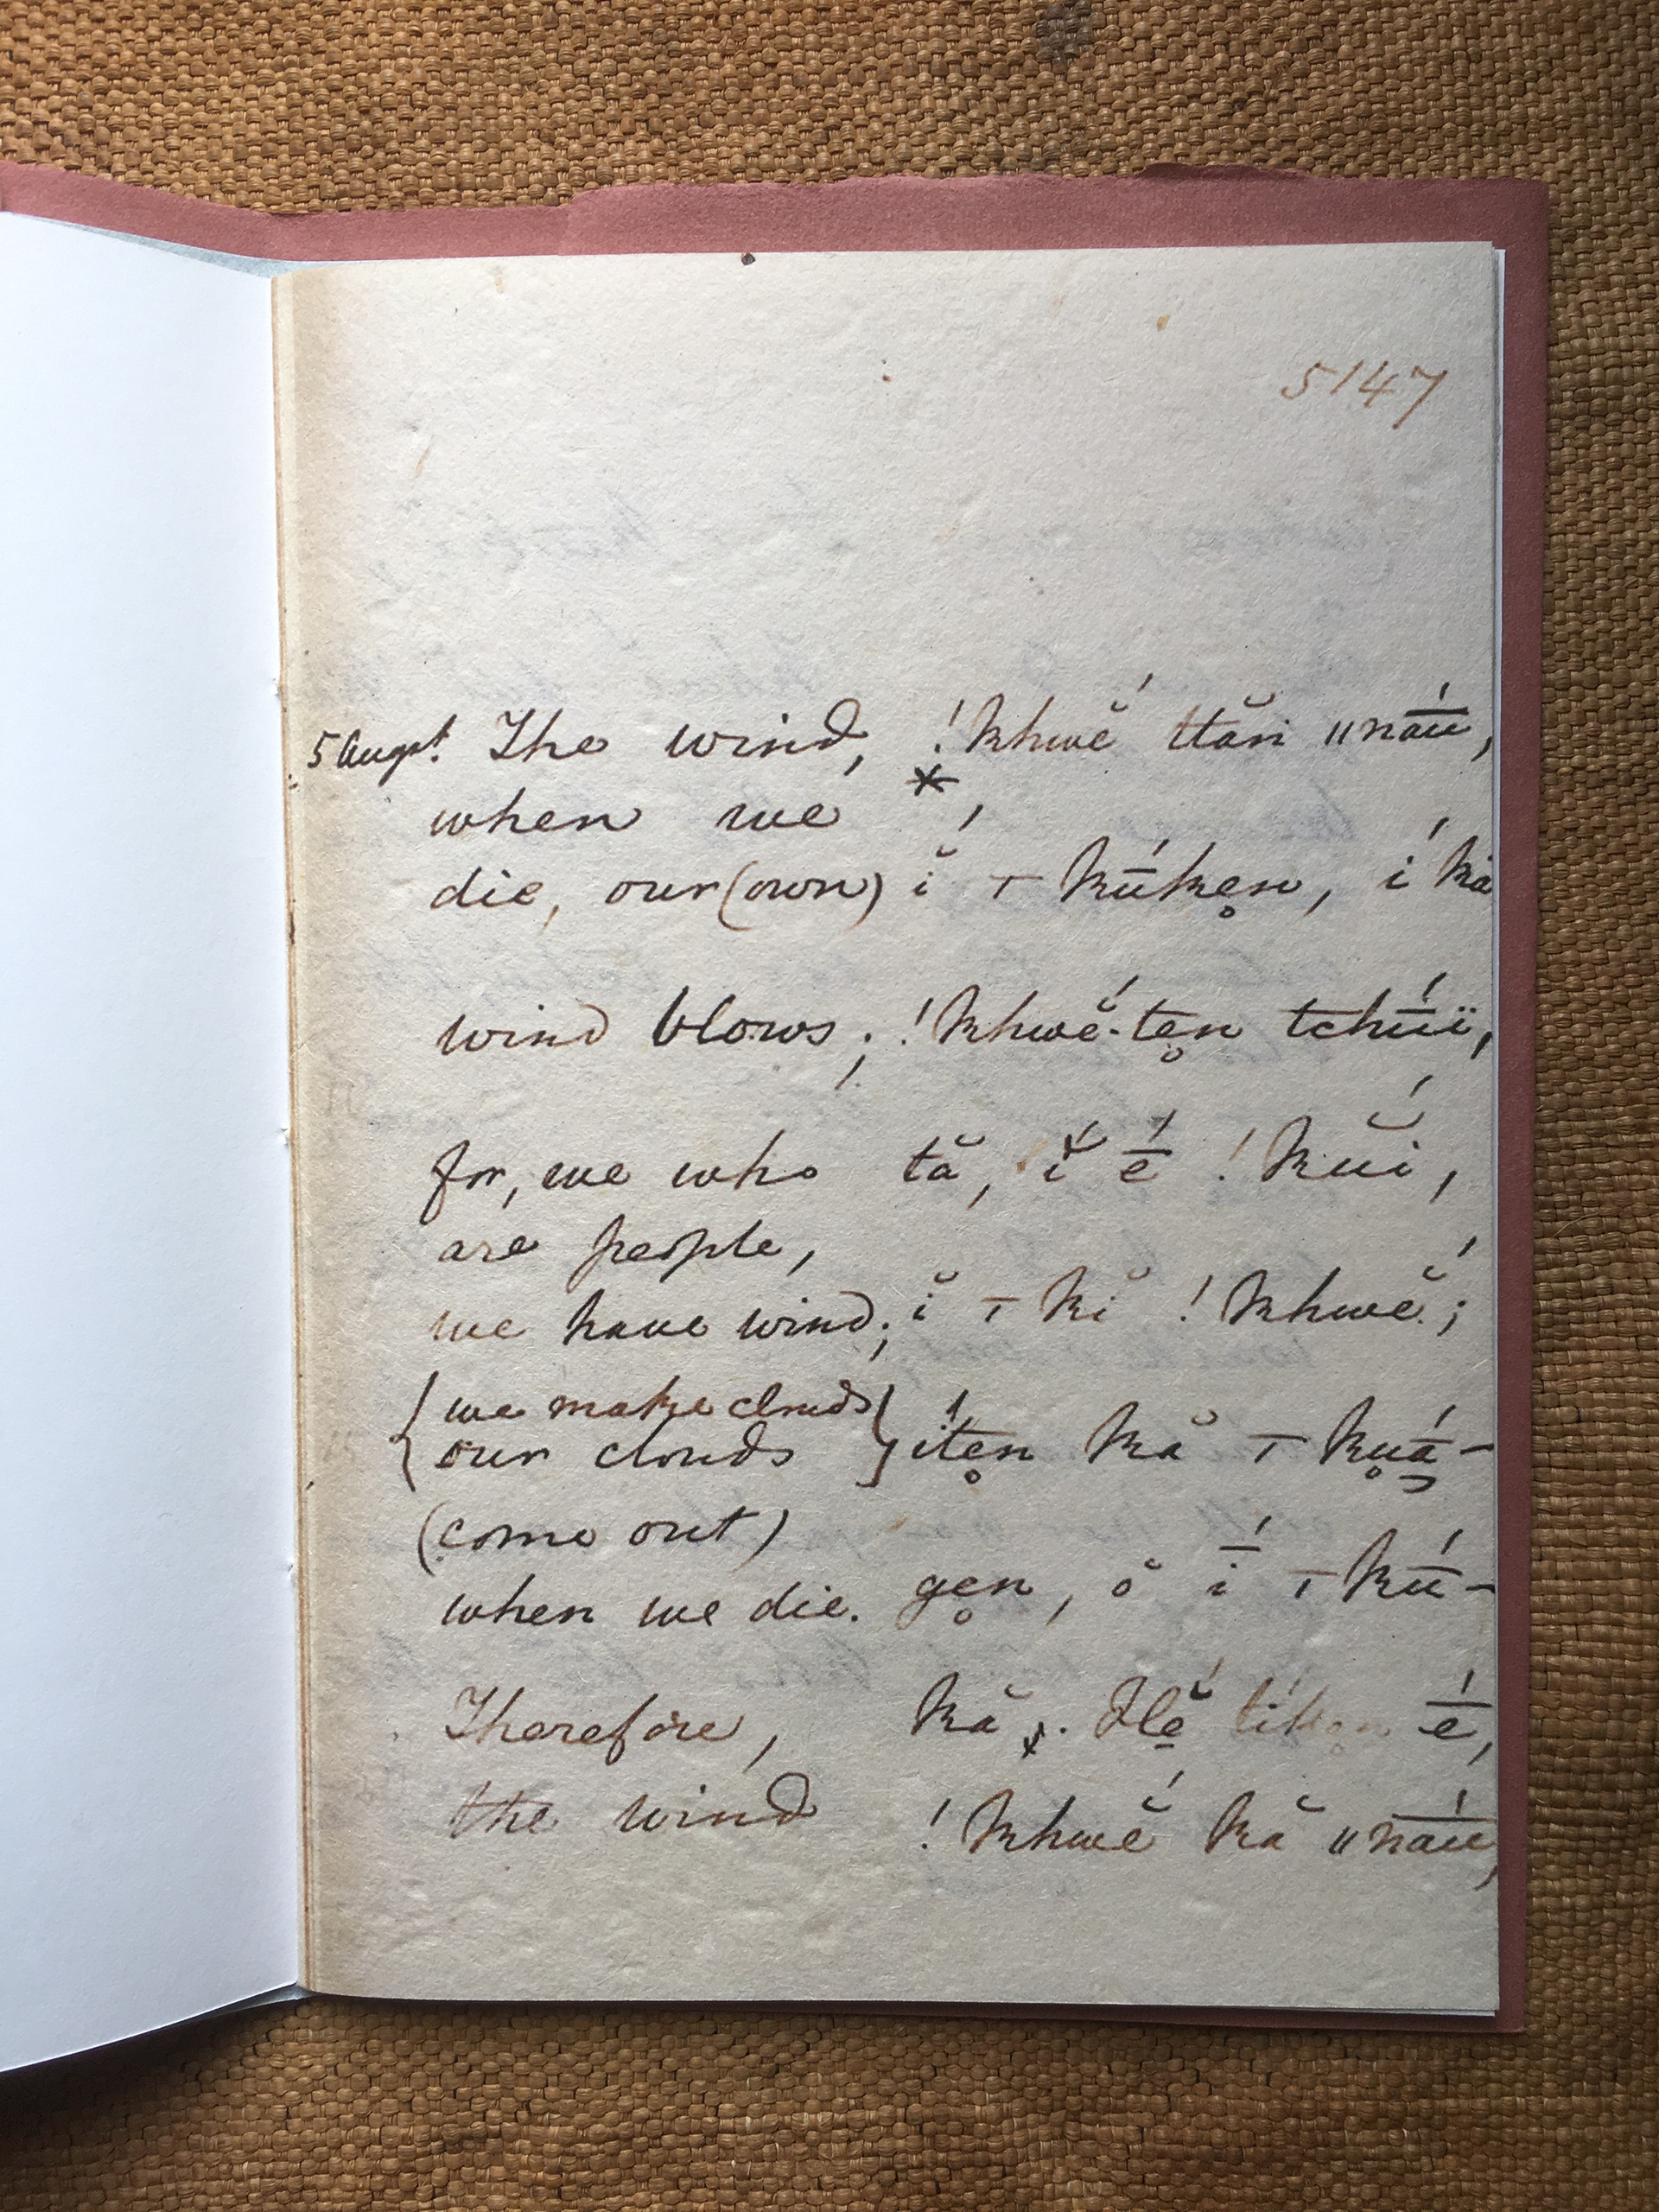 5147
5 Augst. The wind, !khwĕ́ ttări ǁnā́ū,
when we *
die, our (own) ĭ́ ⊤kū́kẹn, í ká
wind blows; !khwĕ́-tẹn tchū́ï,
for, we who tă, ĭ́ ḗ !kŭ́i,
are people,
we have wind; ĭ ⊤kĭ !khwĕ́;
{we make clouds}
{our clouds} ítẹn kă ⊤kụā́-
(come out)
when we die. gẹn, ŏ ī́ ⊤kū́-
Therefore, kă. Hĕ́ tíkẹn ḗ,
the wind !khwĕ́ kă ǁnā́ū,